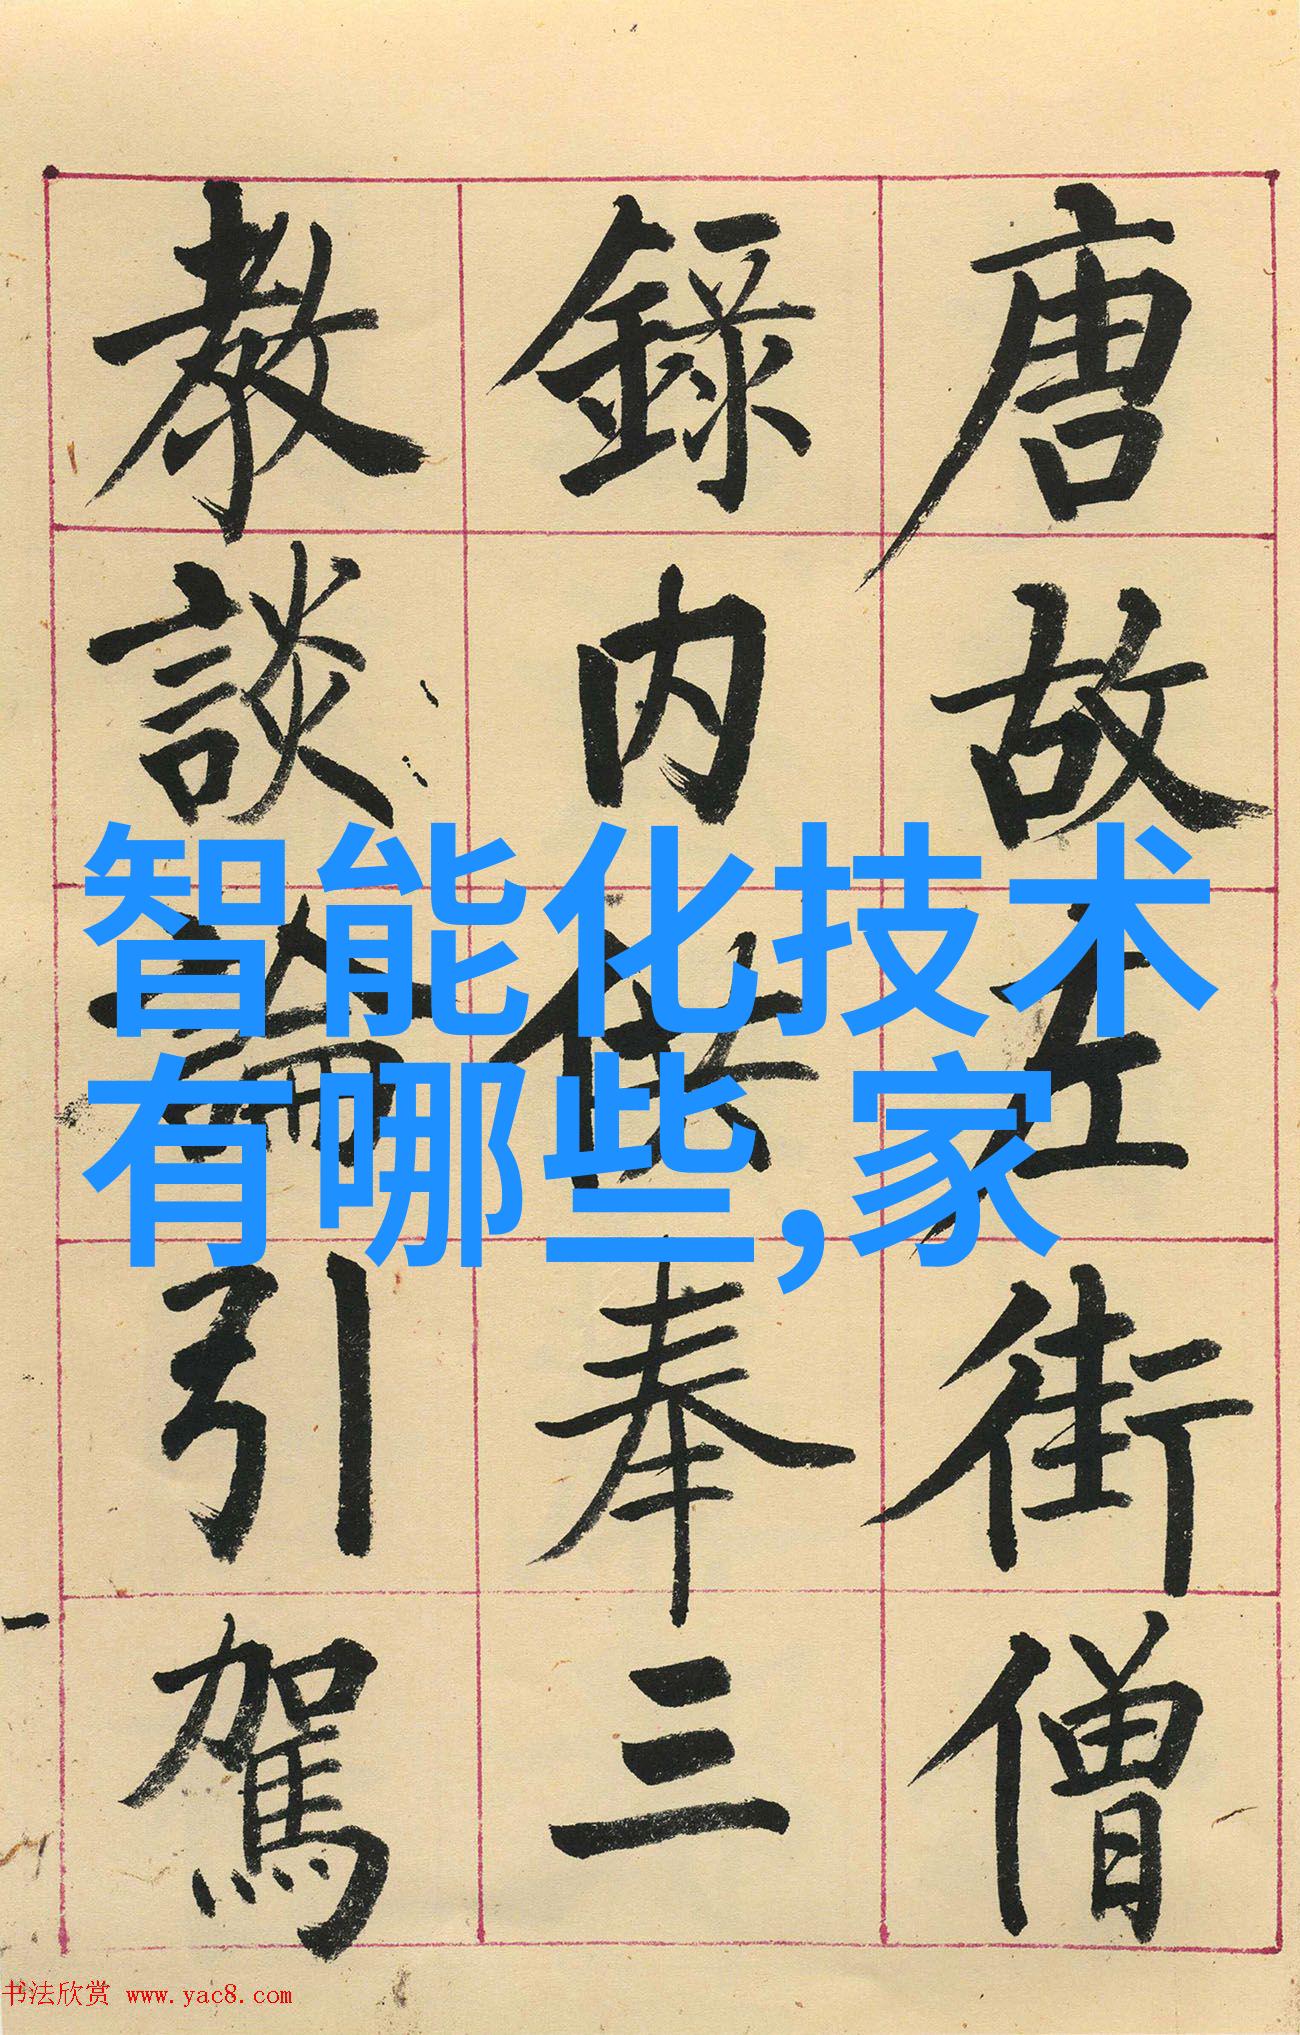 唐故左街僧
錄内供奉三
教談論引駕
智能化技术
有哪些,家
书法欣赏 www.yac8.com